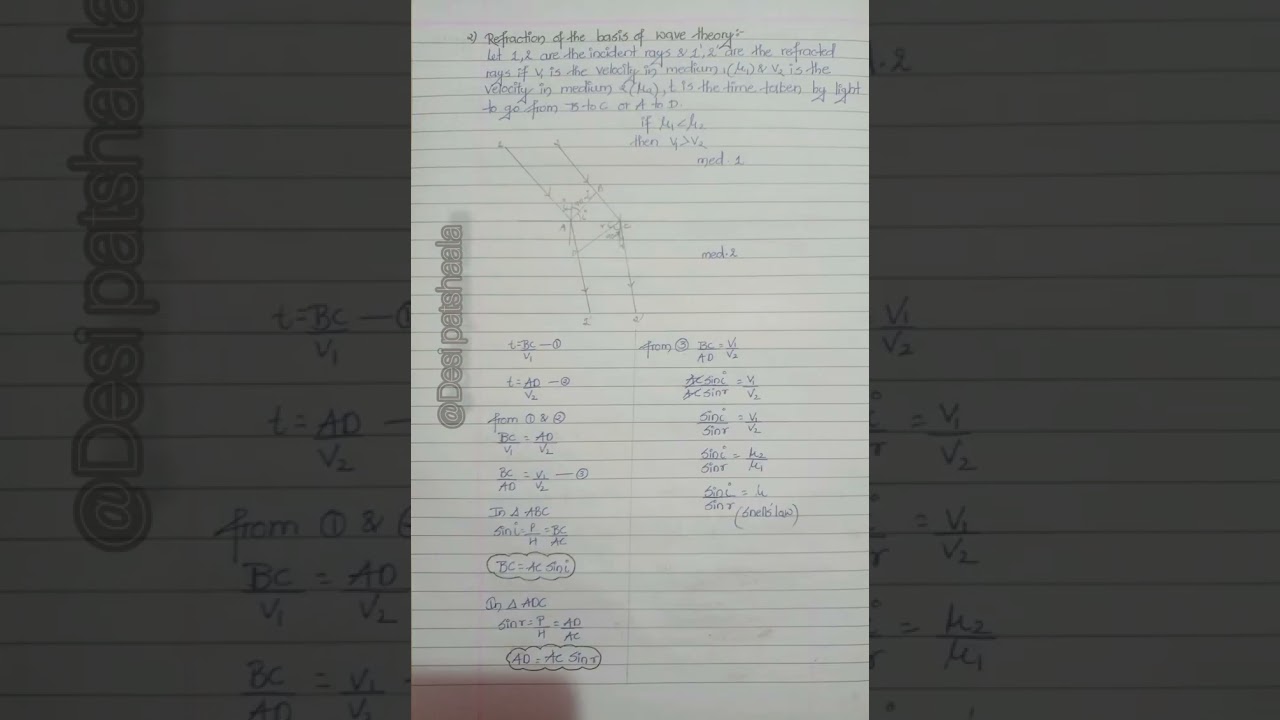 2) Refraction of the basis of wave theory:-
Let 1,2 are the incident rays & 1',2' are the refracted
rays if V₁ is the velocity in medium 1(μ₁) & V₂ is the
velocity in medium 2(μ₂), t is the time taken by light
to go from B to C or A to D.
if μ₁<μ₂
then V₁>V₂
med 1
B
A
C
med.2
2'
t=BC/V₁ —①
t=AD/V₂ —②
from ① & ②
BC/V₁ = AD/V₂
BC/AD = V₁/V₂ —③
In Δ ABC
sin i = P/H = BC/AC
BC = AC sin i
In Δ ADC
sin r = P/H = AD/AC
AD = AC sin r
from ③ BC/AD = V₁/V₂
AC sin i/AC sin r = V₁/V₂
sin i/sin r = V₁/V₂
sin i/sin r = μ₂/μ₁
sin i/sin r = μ
(snells' law)
@Desi patshaala
@Desi patshaala
t=BC/V₁ —
t=AD/V₂
from ① &
BC/V₁ = AD/V₂
BC/AD = V₁/V₂
.2
V₁/V₂
= V₁/V₂
= V₁/V₂
= μ₂/μ₁